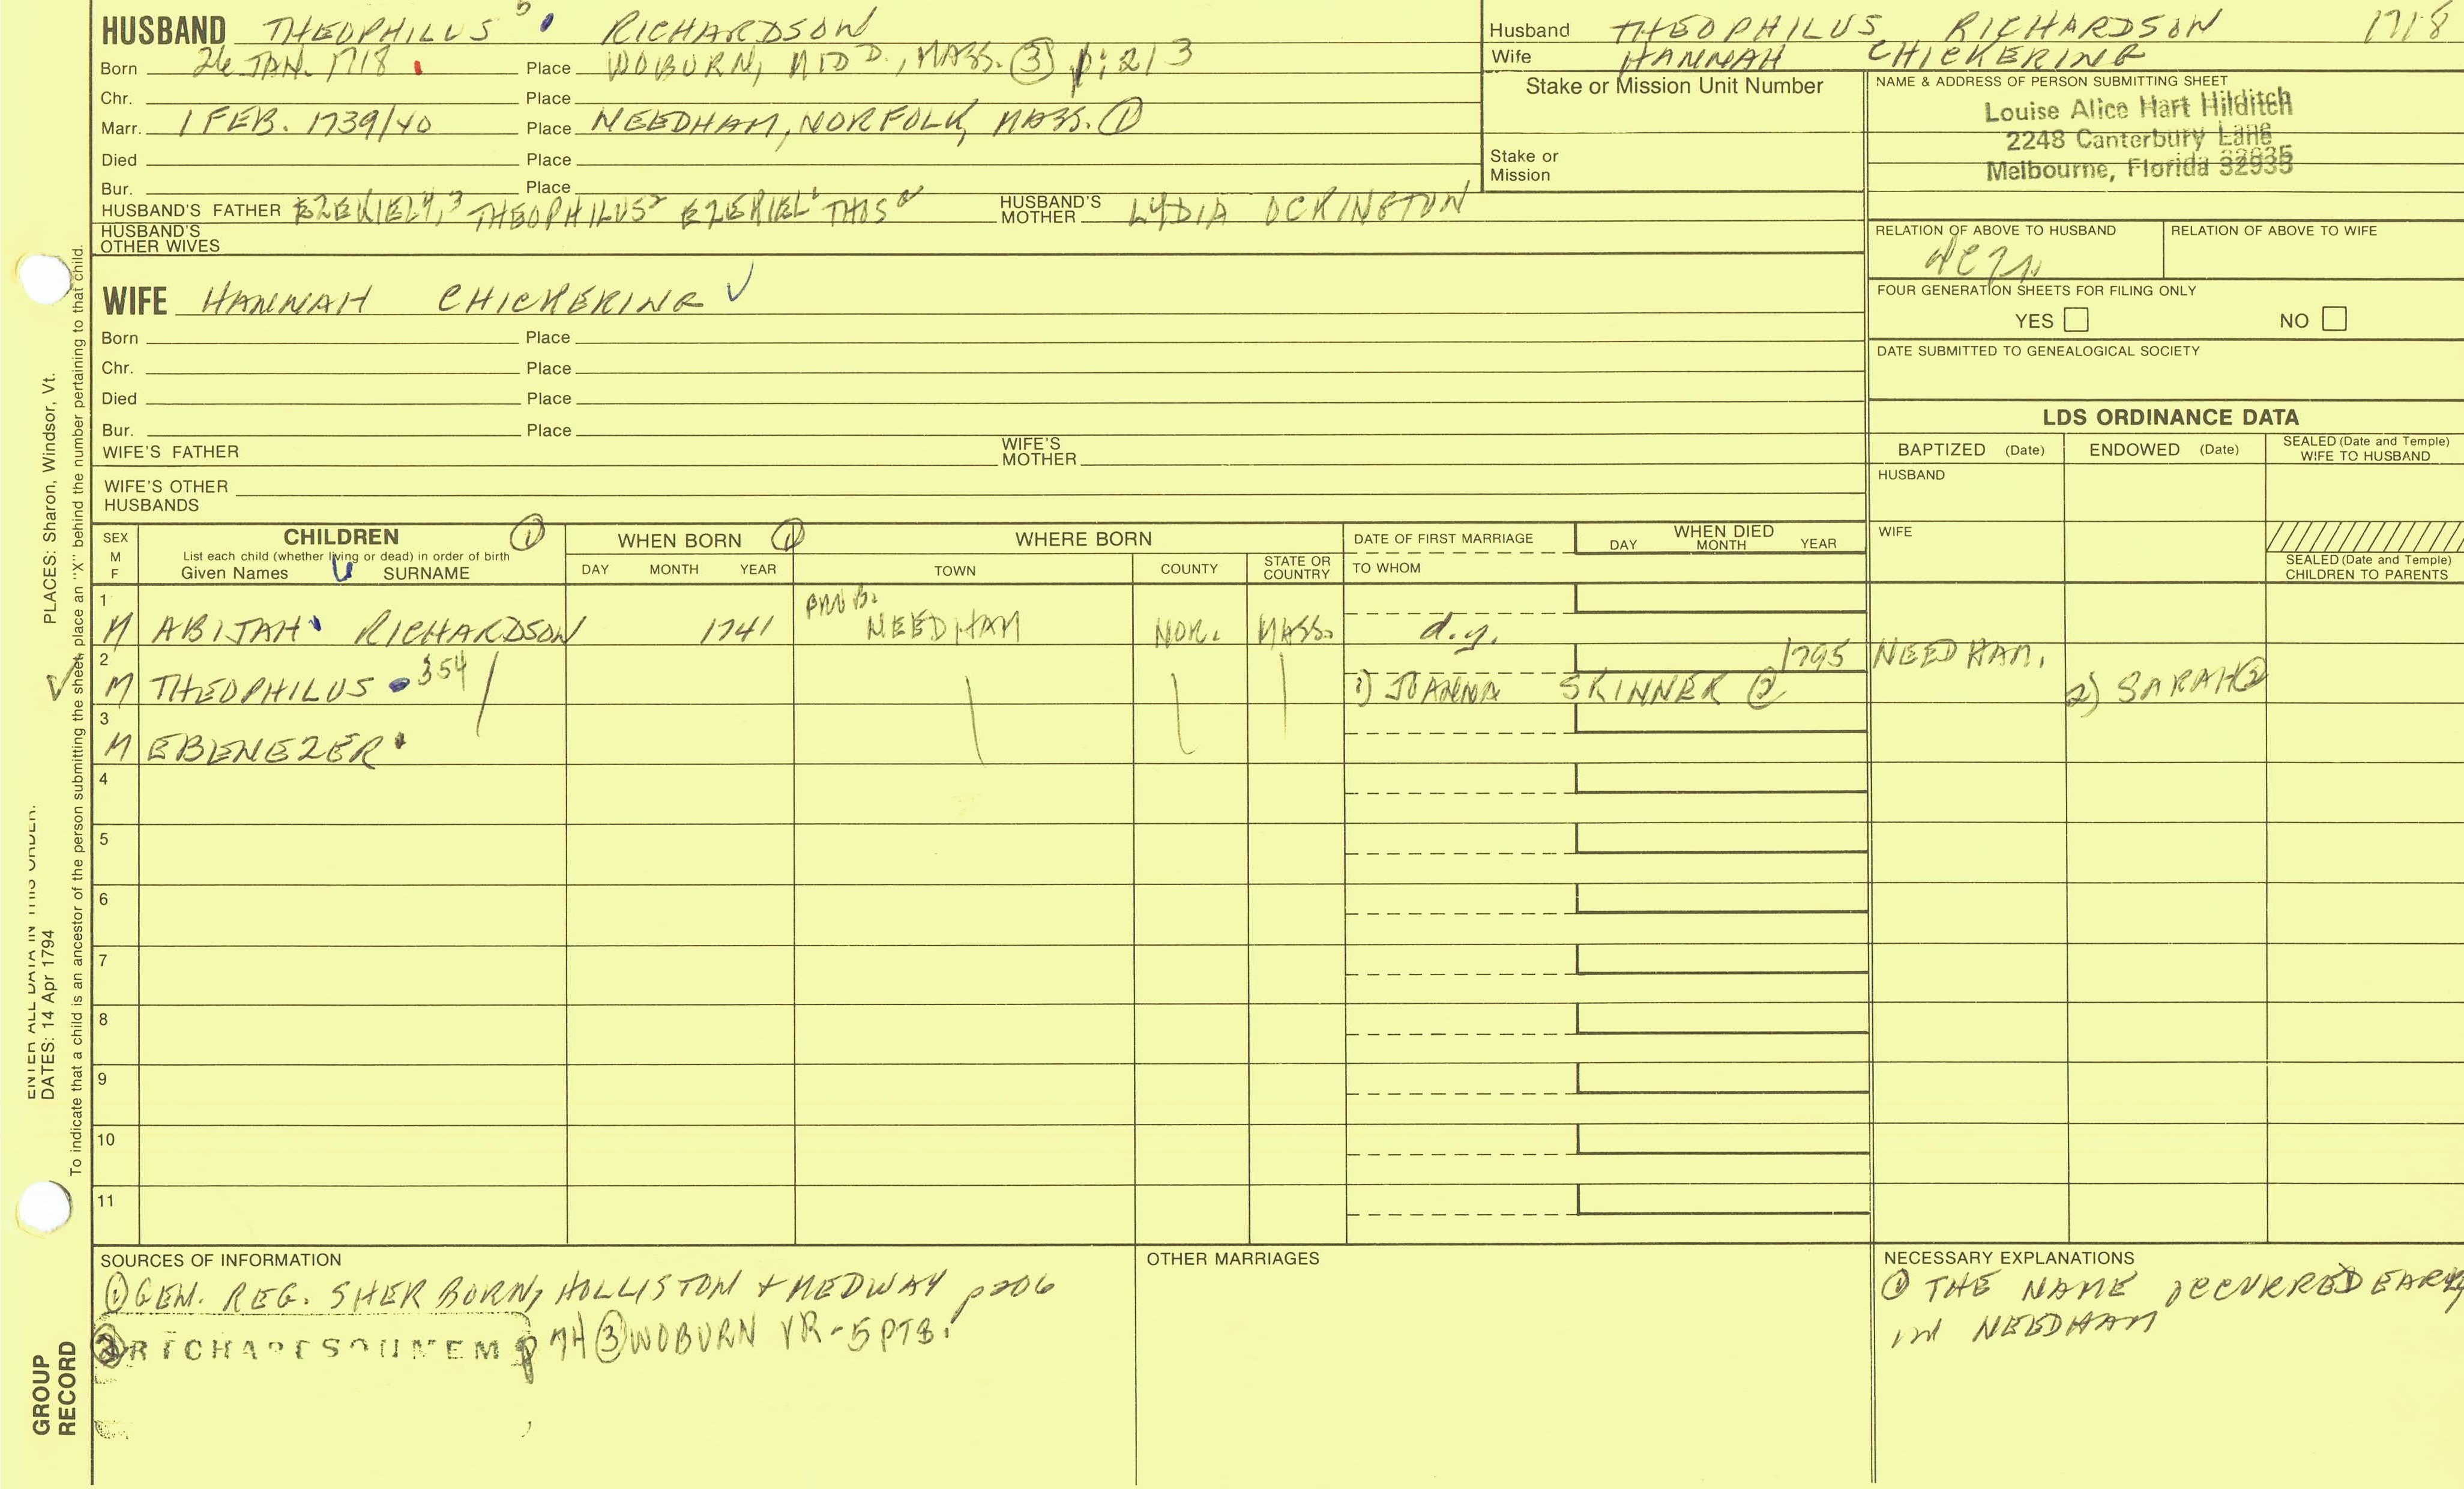 HUSBAND THEOPHILUS 5 RICHARDSON
Born 26 JAN. 1718. Place WOBURN, MIDD., MASS. ③ p. 213
Chr. Place
Marr. 1 FEB. 1739/40 Place NEEDHAM, NORFOLK, MASS. ①
Died Place
Bur. Place
HUSBAND'S FATHER EZEKIEL 4, 3 THEOPHILUS 2 EZEKIEL 1 THOS HUSBAND'S MOTHER LYDIA OCKINGTON
HUSBAND'S OTHER WIVES
Husband THEOPHILUS RICHARDSON 1718
Wife HANNAH CHICKERING
Stake or Mission Unit Number
Stake or Mission
NAME & ADDRESS OF PERSON SUBMITTING SHEET
Louise Alice Hart Hilditch
2248 Canterbury Lane
Melbourne, Florida 32935
RELATION OF ABOVE TO HUSBAND RELATION OF ABOVE TO WIFE
FOUR GENERATION SHEETS FOR FILING ONLY
YES NO
DATE SUBMITTED TO GENEALOGICAL SOCIETY
WIFE HANNAH CHICKERING ✓
Born Place
Chr. Place
Died Place
Bur. Place
WIFE'S FATHER WIFE'S MOTHER
WIFE'S OTHER HUSBANDS
LDS ORDINANCE DATA
BAPTIZED (Date) ENDOWED (Date) SEALED (Date and Temple) WIFE TO HUSBAND
HUSBAND
WIFE
SEALED (Date and Temple) CHILDREN TO PARENTS
SEX M F
CHILDREN ①
List each child (whether living or dead) in order of birth
Given Names SURNAME
WHEN BORN ①
DAY MONTH YEAR
WHERE BORN
TOWN COUNTY STATE OR COUNTRY
DATE OF FIRST MARRIAGE
TO WHOM
WHEN DIED
DAY MONTH YEAR
1 M ABIJAH RICHARDSON 1741 NEEDHAM NOR. MASS. d.y.
2 M THEOPHILUS 354 1) JOANNA SKINNER ② 1795 NEEDHAM. 2) SARAH ②
3 M EBENEZER
4
5
6
7
8
9
10
11
SOURCES OF INFORMATION
① GEN. REG. SHERBORN, HOLLISTON + MEDWAY p206
② RICHARDSON MEM p 74 ③ WOBURN VR - 5 PTS.
OTHER MARRIAGES
NECESSARY EXPLANATIONS
① THE NAME OCCURRED EARLY
IN NEEDHAM
PLACES: Sharon, Windsor, Vt.
ENTER ALL DATA IN THIS ORDER:
DATES: 14 Apr 1794
To indicate that a child is an ancestor of the person submitting the sheet, place an "X" behind the number pertaining to that child.
GROUP
RECORD